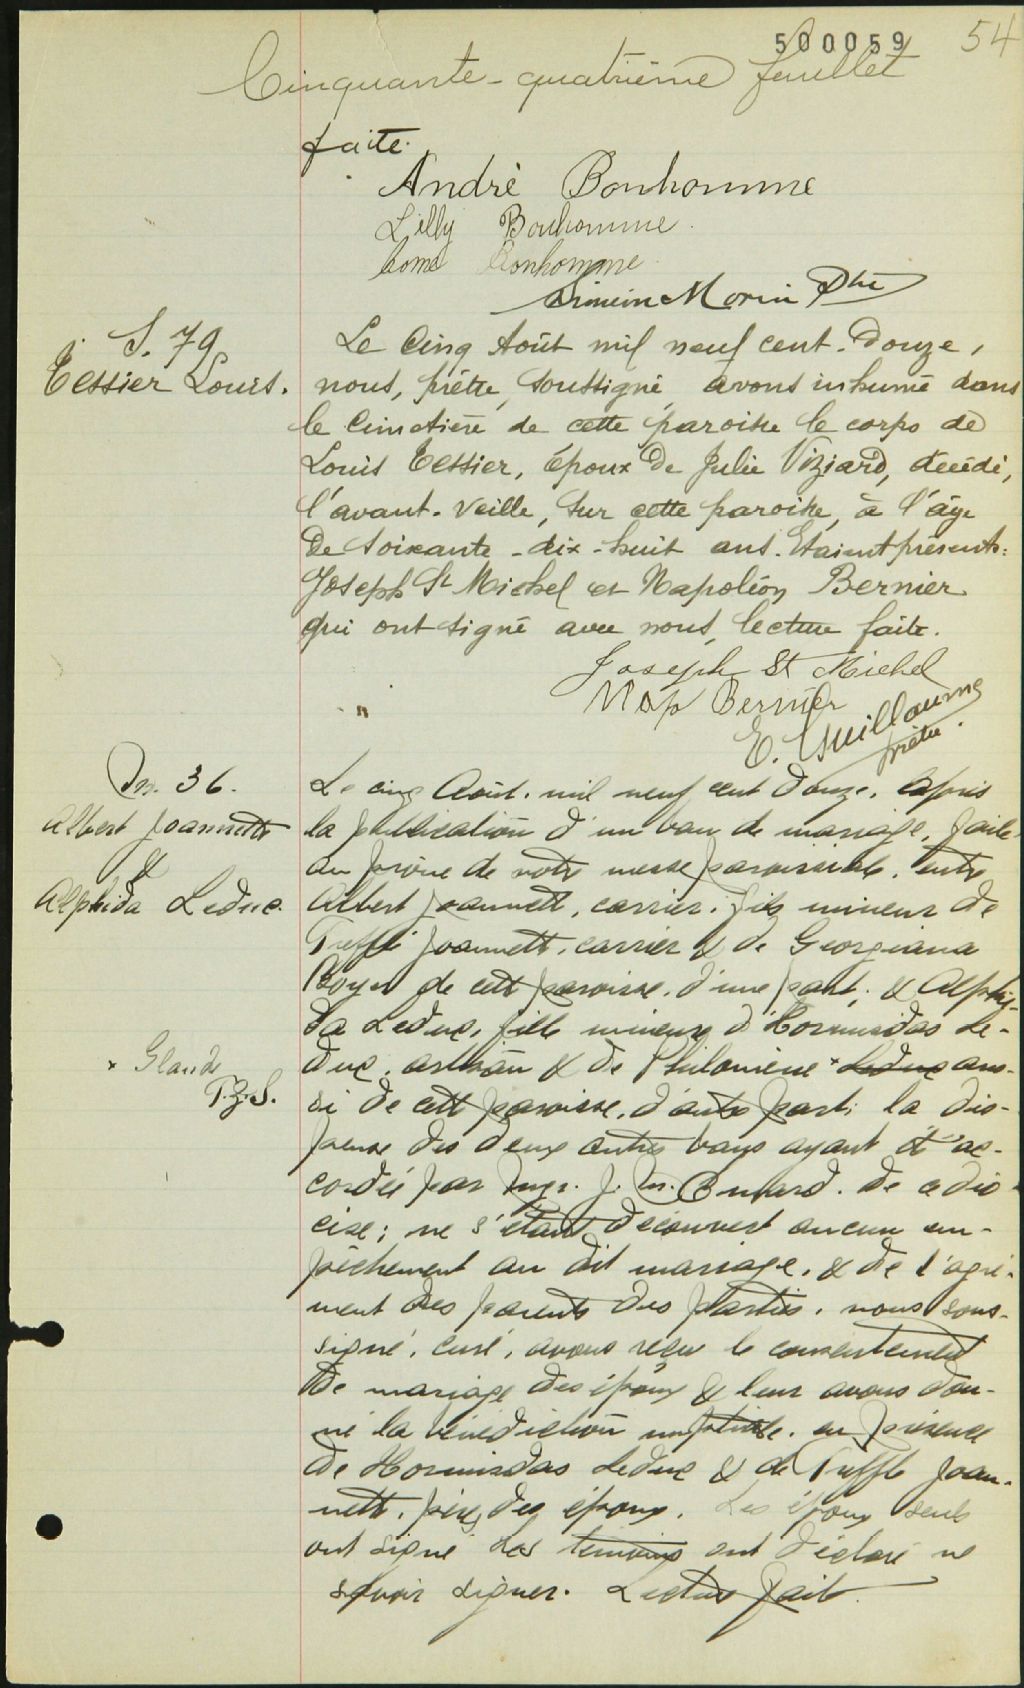 500059 54
Cinquante-quatrième feuillet
faite.
André Bonhomme
Lilly Bonhomme
Come Bonhomme
Siméin Morin Ptre
S. 79
Tessier Louis.
Le cinq Août mil neuf cent-douze,
nous, prêtre, soussigné, avons inhumé dans
le cimetière de cette paroisse le corps de
Louis Tessier, Époux de Julie Viziard, décédé,
l'avant-veille, sur cette paroisse, à l'âge
de soixante-dix-huit ans. Etaient présents:
Joseph St Michel et Napoléon Bernier
qui ont signé avec nous, lecture faite.
Joseph St Michel
Nap Bernier
E. Guillaume
prêtre.
M. 36.
Albert Joannette
&
Alphida Leduc.
Le cinq Août, mil neuf cent douze, après
la publication d'un ban de mariage, faite
au prône de notre messe paroissiale, entre
Albert Joannett, carrier, fils mineur de
Trefflé Joannett, carrier & de Georgiana
Boyer de cett paroisse, d'une part; & Alphi-
da Leduc, fille mineure d'Hormisdas Le-
duc, artisan & de Philomène × Leduc aus-
× Glaude
si de cett paroisse, d'autre part; la dis-
pense des deux autres bans ayant été ac-
cordée par Mgr. J. de ce dio-
cèse; ne s'étant découvert aucun em-
pêchement au dit mariage, & de l'agré-
ment des parents des parties, nous sous-
signé, curé, avons reçu le consentement
de mariage des époux & leur avons don-
né la bénédiction nuptiale, en présence
de Hormisdas Leduc & de Trefflé Joan-
nett, pères des époux. Les époux seuls
ont signé les témoins ont déclaré ne
savoir signer. Lecture fait